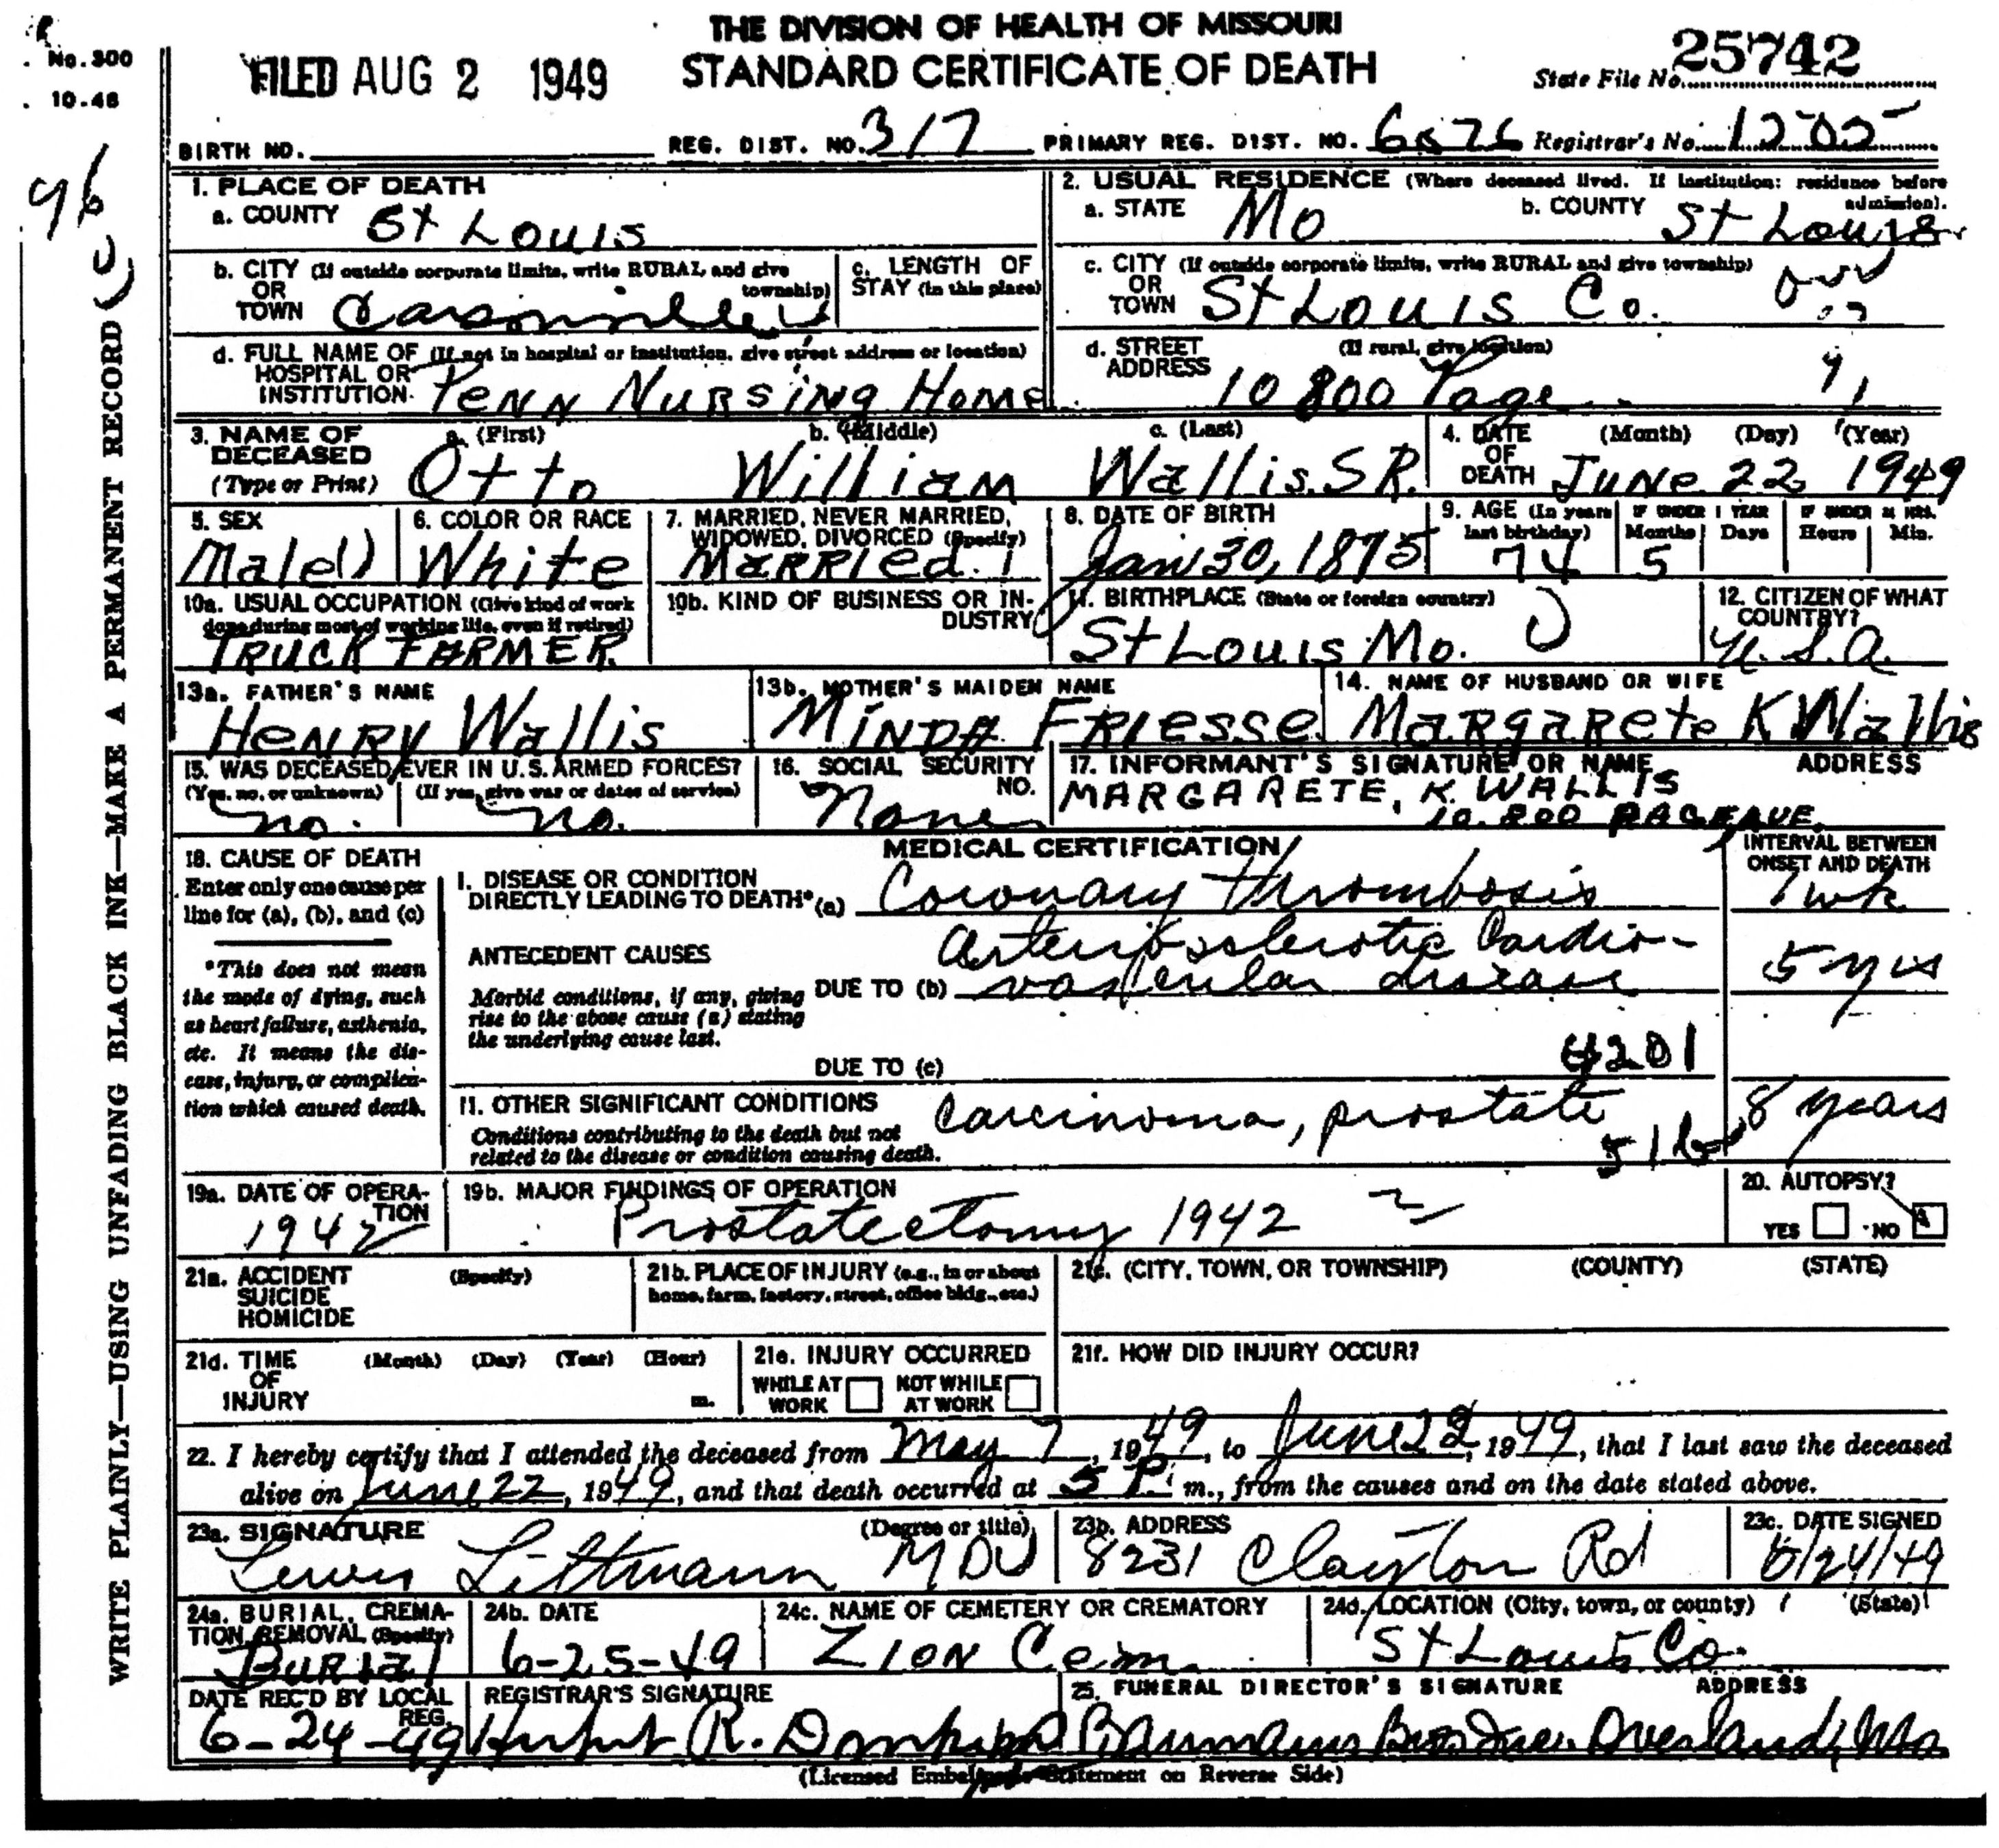 No. 300
10-48
THE DIVISION OF HEALTH OF MISSOURI
FILED AUG 2 1949
STANDARD CERTIFICATE OF DEATH
State File No. 25742
BIRTH NO.
REG. DIST. NO. 317
PRIMARY REG. DIST. NO.
Registrar's No. 1205
WRITE PLAINLY—USING UNFADING BLACK INK—MAKE A PERMANENT RECORD
96
1. PLACE OF DEATH
a. COUNTY St Louis
2. USUAL RESIDENCE (Where deceased lived. If institution: residence before admission).
a. STATE Mo
b. COUNTY St Louis
b. CITY (If outside corporate limits, write RURAL and give township) OR TOWN Carsonville
c. LENGTH OF STAY (in this place)
c. CITY (If outside corporate limits, write RURAL and give township) OR TOWN St Louis Co.
d. FULL NAME OF (If not in hospital or institution, give street address or location) HOSPITAL OR INSTITUTION Penn Nursing Home
d. STREET ADDRESS (If rural, give location) 10800 Page
3. NAME OF DECEASED (Type or Print)
a. (First) Otto
b. (Middle) William
c. (Last) Wallis. SR.
4. DATE OF DEATH (Month) (Day) (Year) June 22 1949
5. SEX Male
6. COLOR OR RACE White
7. MARRIED, NEVER MARRIED, WIDOWED, DIVORCED (Specify) Married
8. DATE OF BIRTH Jan 30, 1875
9. AGE (In years last birthday) 74
IF UNDER 1 YEAR Months 5 Days
IF UNDER 24 HRS. Hours Min.
10a. USUAL OCCUPATION (Give kind of work done during most of working life, even if retired) TRUCK FARMER
10b. KIND OF BUSINESS OR INDUSTRY
11. BIRTHPLACE (State or foreign country) St Louis Mo.
12. CITIZEN OF WHAT COUNTRY? U.S.A.
13a. FATHER'S NAME Henry Wallis
13b. MOTHER'S MAIDEN NAME Minda Friesse
14. NAME OF HUSBAND OR WIFE Margarete K Wallis
15. WAS DECEASED EVER IN U.S. ARMED FORCES?
(Yes, no, or unknown) no.
(If yes, give war or dates of service) no.
16. SOCIAL SECURITY NO. None
17. INFORMANT'S SIGNATURE OR NAME ADDRESS
MARGARETE, K. WALLIS
10.800 PAGE AVE.
MEDICAL CERTIFICATION
18. CAUSE OF DEATH
Enter only one cause per line for (a), (b), and (c)
*This does not mean the mode of dying, such as heart failure, asthenia, etc. It means the disease, injury, or complication which caused death.
I. DISEASE OR CONDITION DIRECTLY LEADING TO DEATH* (a) Coronary thrombosis
INTERVAL BETWEEN ONSET AND DEATH
1 wk
ANTECEDENT CAUSES
Morbid conditions, if any, giving rise to the above cause (a) stating the underlying cause last.
DUE TO (b) Arteriosclerotic Cardio-
vascular disease
5 yrs
DUE TO (c)
4201
11. OTHER SIGNIFICANT CONDITIONS
Conditions contributing to the death but not related to the disease or condition causing death.
Carcinoma, prostate
8 years
19a. DATE OF OPERATION 1942
19b. MAJOR FINDINGS OF OPERATION Prostatectomy 1942
20. AUTOPSY?
YES NO
21a. ACCIDENT SUICIDE HOMICIDE (Specify)
21b. PLACE OF INJURY (e.g., in or about home, farm, factory, street, office bldg., etc.)
21c. (CITY, TOWN, OR TOWNSHIP) (COUNTY) (STATE)
21d. TIME OF INJURY (Month) (Day) (Year) (Hour) m.
21e. INJURY OCCURRED
WHILE AT WORK NOT WHILE AT WORK
21f. HOW DID INJURY OCCUR?
22. I hereby certify that I attended the deceased from May 7, 1949, to June 22, 1949, that I last saw the deceased
alive on June 22, 1949, and that death occurred at 5 P. m., from the causes and on the date stated above.
23a. SIGNATURE (Degree or title)
Lewis Littmann MD
23b. ADDRESS 8231 Clayton Rd
23c. DATE SIGNED 6/24/49
24a. BURIAL, CREMATION, REMOVAL (Specify) Burial
24b. DATE 6-25-49
24c. NAME OF CEMETERY OR CREMATORY Zion Cem.
24d. LOCATION (City, town, or county) (State) St Louis Co.
DATE REC'D BY LOCAL REG. 6-24-49
REGISTRAR'S SIGNATURE
25. FUNERAL DIRECTOR'S SIGNATURE ADDRESS
Baumann Bros Inc. Overland, Mo
(Licensed Embalmer's Statement on Reverse Side)